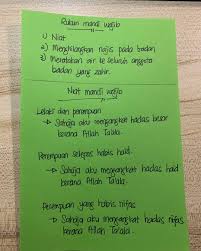 Rukun mandi wajib
1) Niat
2) Menghilangkan najis pada badan
3) Meratakan air ke seluruh anggota
badan yang zahir.
Niat mandi wajib
Lelaki dan perempuan
→ Sahaja aku mengangkat hadas besar
kerana Allah Ta'ala.
Perempuan selepas habis haid
→ Sahaja aku mengangkat hadas haid
kerana Allah Ta'ala.
Perempuan yang habis nifas
→ Sahaja aku mengangkat hadas nifas
kerana Allah Ta'ala.